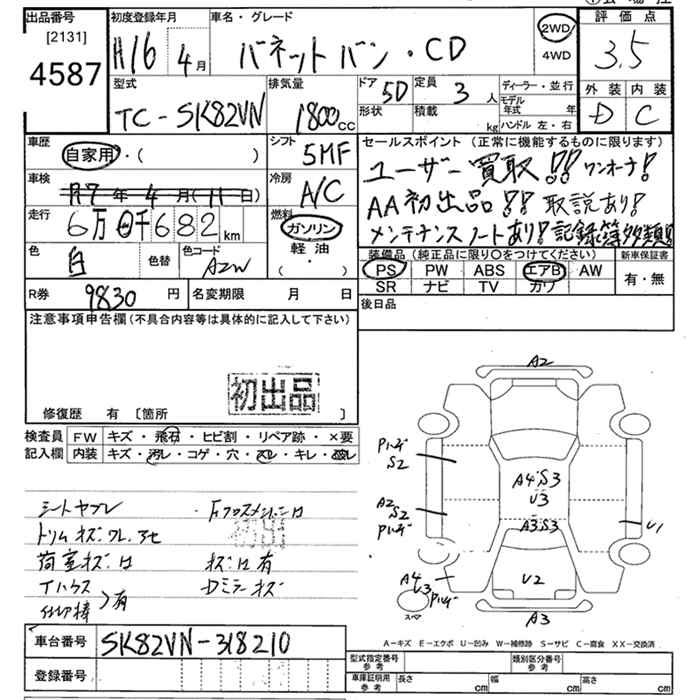 出品番号
[2131]
4587
初度登録年月
H16 4月
車名・グレード
バネットバン・CD
2WD
4WD
評価点
3.5
型式
TC-SK82VN
排気量
1800cc
ドア
5D
形状
定員
3人
積載
kg
ディーラー・並行
モデル年式 年
ハンドル 左・右
外装 内装
D C
車歴
自家用・( )
シフト
5MF
セールスポイント (正常に機能するものに限ります)
ユーザー買取!! ワンオーナ!
AA初出品!! 取説あり!
メンテナンスノートあり! 記録簿多数!
車検
R7年4月(11日)
冷房
A/C
走行
6万0千682km
燃料
ガソリン
軽油
( ・ )
色
白
色替
色コード
AZW
装備品 (純正品に限り○をつけてください)
PS PW ABS エアB AW
SR ナビ TV カワ
新車保証書
有・無
R券 9830円
名変期限 月 日
後日品
注意事項申告欄(不具合内容等は具体的に記入して下さい)
初出品
修復歴 有 [箇所 ]
検査員記入欄
FW キズ・飛石・ヒビ割・リペア跡・×要
内装 キズ・汚レ・コゲ・穴・スレ・キレ・
シートヤブレ
トリムキズ ワレ アセ
荷室キズ凹
初出
キズ凹有
Dミラーキズ
有
車台番号 SK82VN-318210
登録番号
A2
Pハゲ
S2
A4 S3
U3
A3.S3
A2
S2
Pハゲ
U1
A4
U3
Pハゲ
スペア
U2
A3
A-キズ E-エクボ U-凹み W-補修跡 S-サビ C-腐食 XX-交換済
型式指定番号
参考
類別区分番号
参考
車庫証明用
参考
長さ cm 幅 cm 高さ cm